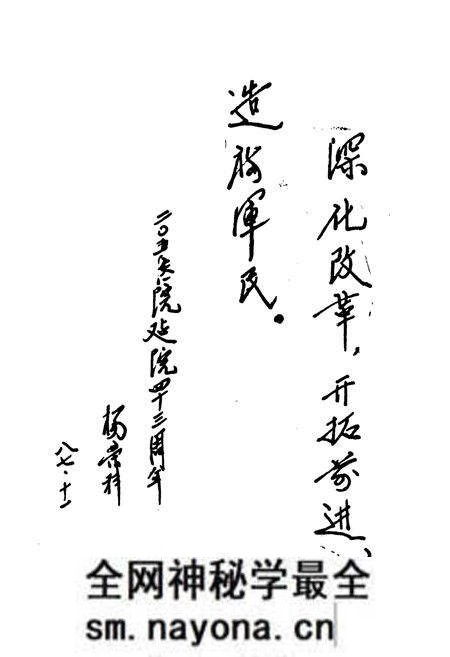 深化改革，开拓前进、
造福军民。
二〇五医院建院四十三周年
杨崇科
八七·十一
全网神秘学最全
sm.nayona.cn